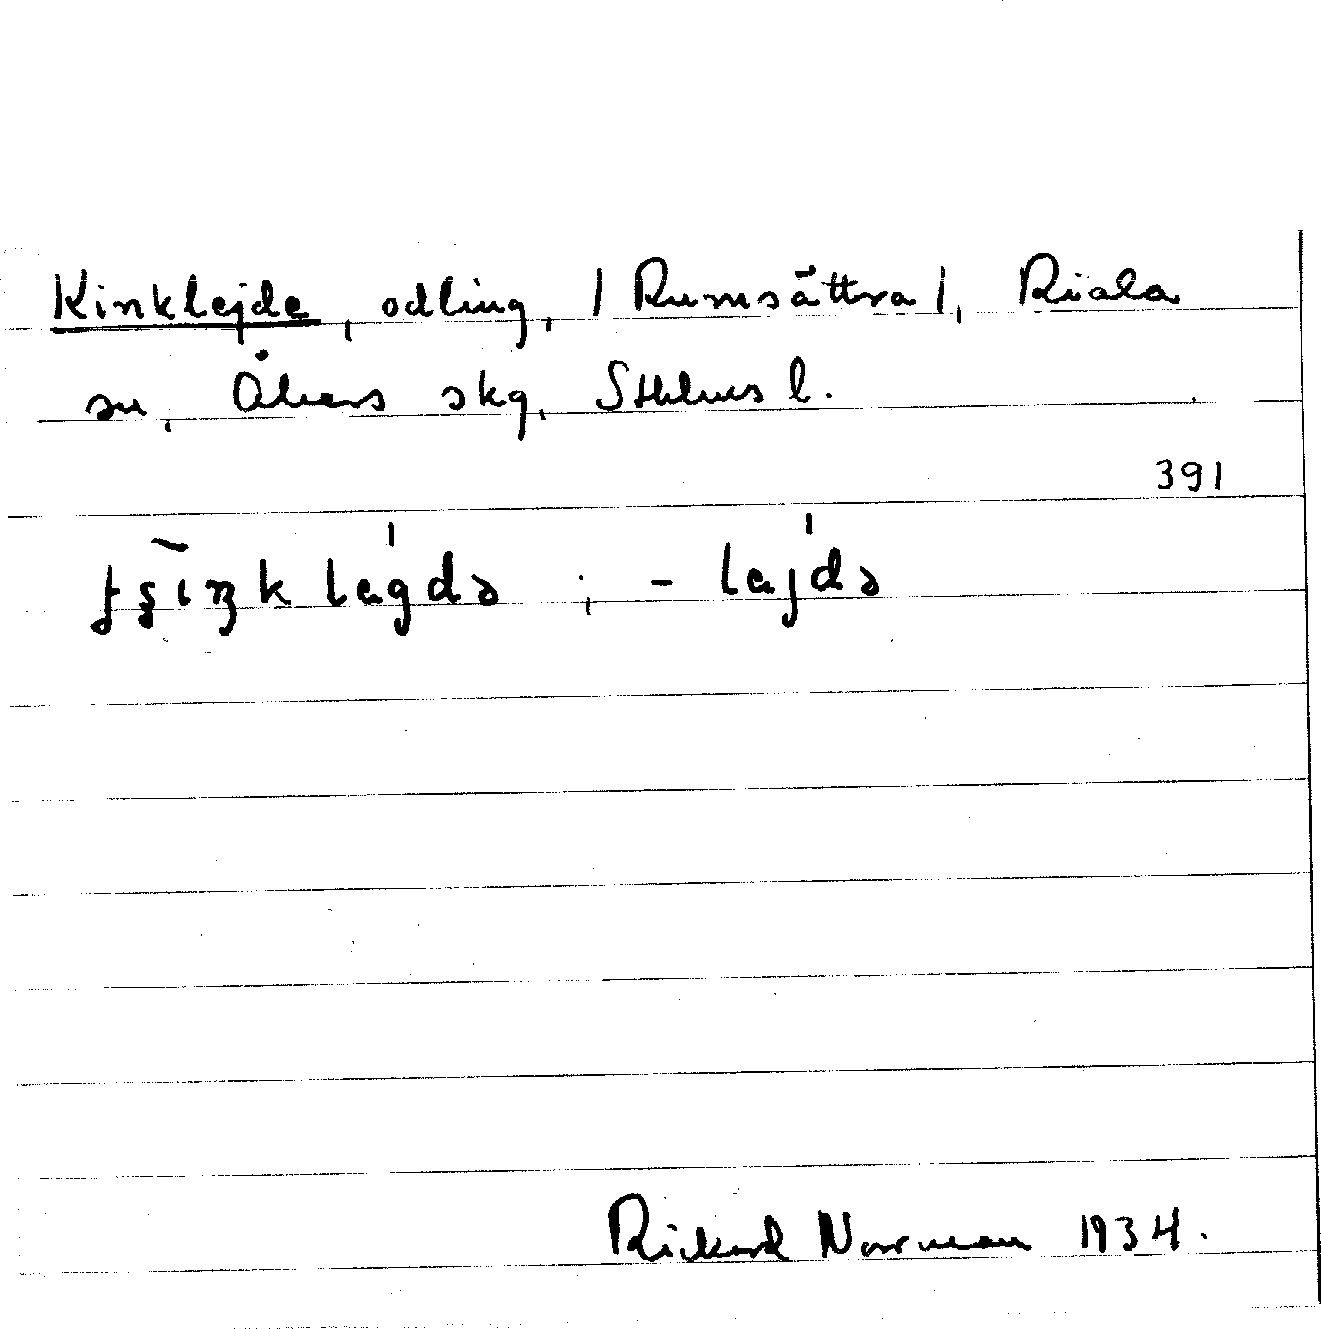 Kinklejde, odling, / Rumsättra /, Riala
sn, Åkers skg, Sthlms l.
391
; - lajdə
Rickard Norrman 1934.